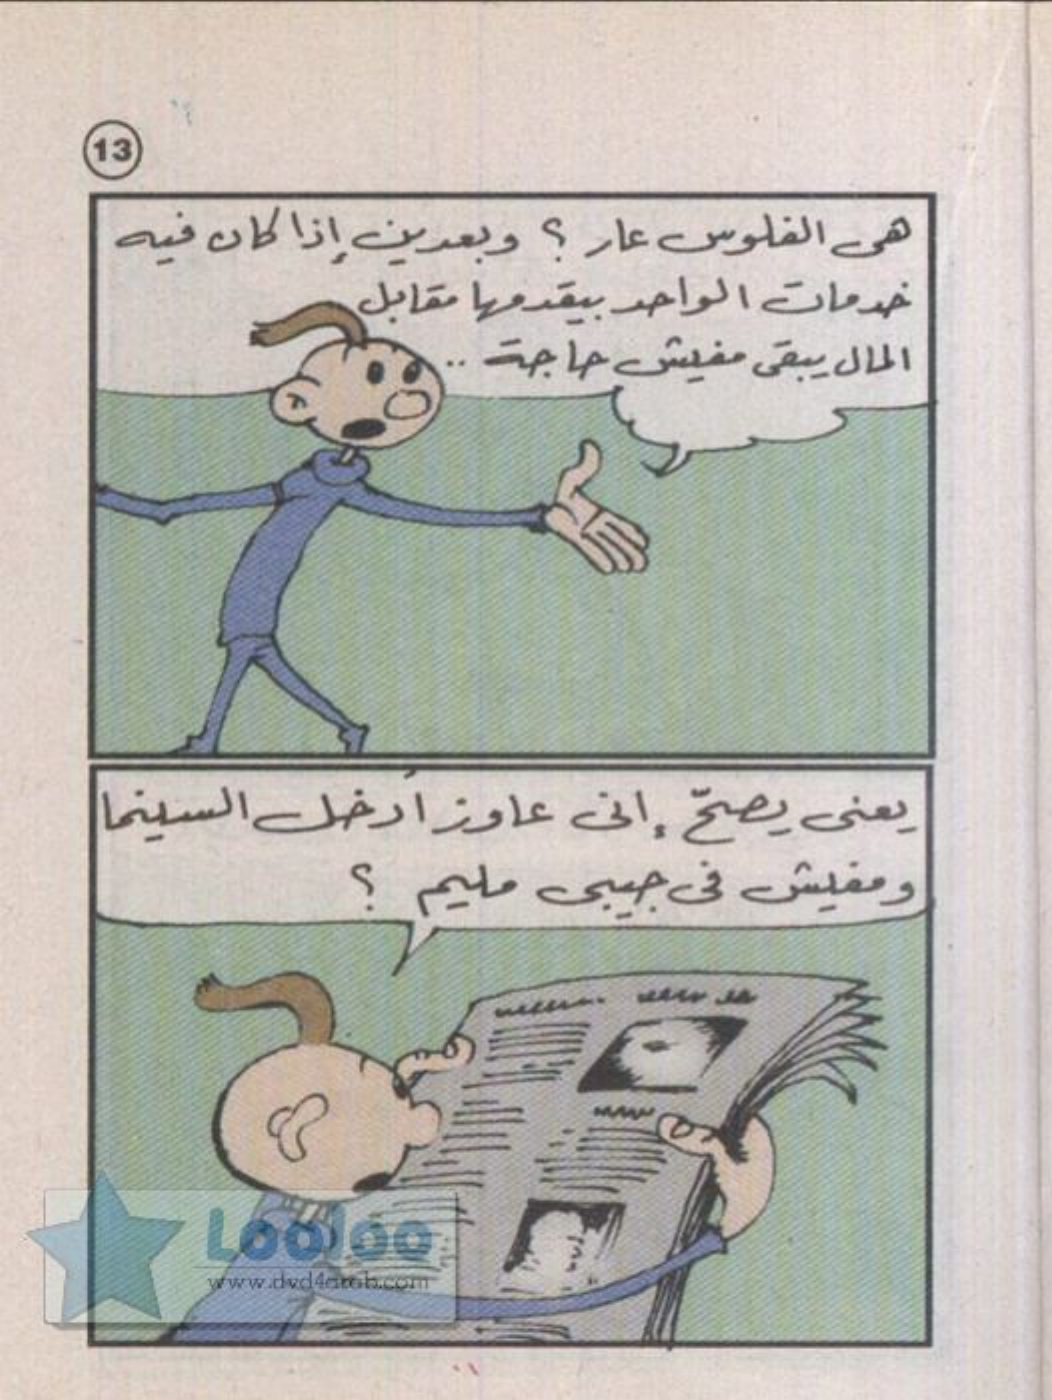 13
هى الفلوس عار ؟ وبعدين إذا كان فيه
خدمات الواحد بيقدمها مقابل
المال يبقى مفيش حاجة ..
يعنى يصحّ إنى عاوز أدخل السينما
ومفيش فى جيبى مليم ؟
Looloo
www.dvd4arab.com